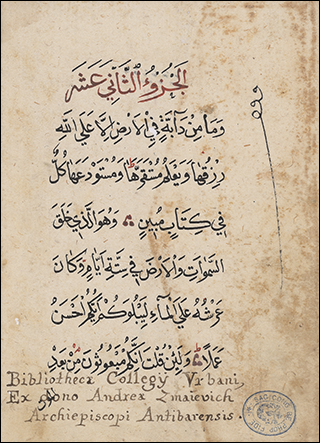 الجزؤ الثاني عشر
وَمَا مِنْ دَآبَّةٍ فِي الْاَرْضِ اِلَّا عَلَي اللّٰهِ
رِزْقُهَا وَيَعْلَمُ مُسْتَقَرَّهَا وَمُسْتَوْدَعَهَا كُلٌّ
فِي كِتَابٍ مُبِينٍ وَهُوَ الَّذِي خَلَقَ
السَّمٰوَاتِ وَالْاَرْضَ فِي سِتَّةِ اَيَّامٍ وَكَانَ
عَرْشُهُ عَلَي الْمَآءِ لِيَبْلُوَكُمْ اَيُّكُمْ اَحْسَنُ
عَمَلًا وَلَئِنْ قُلْتَ اِنَّكُمْ مَبْعُوثُونَ مِنْ بَعْدِ
Bibliotheca Collegy Vrbani,
Ex dono Andreæ Zmaievich
Archiepiscopi Antibarensis.